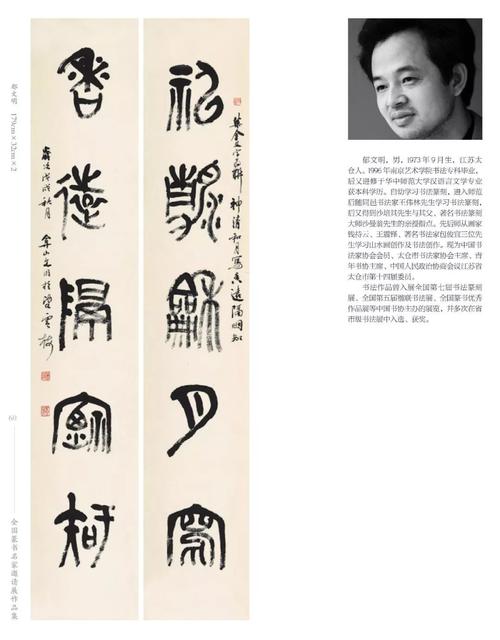 郁文明，男，1973年9月生，江苏太
仓人。1996年南京艺术学院书法专科毕业，
后又进修于华中师范大学汉语言文学专业
获本科学历。自幼学习书法篆刻，进入师范
后随同邑书法家王伟林先生学习书法篆刻，
后又得到沙培其先生与其父、著名书法篆刻
大师沙曼翁先生的亲授指点。先后师从画家
钱持云、王震铎、著名书法家包俊宜三位先
生学习山水画创作及书法创作。现为中国书
法家协会会员、太仓市书法家协会主席、青
年书协主席、中国人民政治协商会议江苏省
太仓市第十四届委员。
书法作品曾入展全国第七届书法篆刻
展、全国第五届楹联书法展、全国篆书优秀
作品展等中国书协主办的展览，并多次在省
市级书法展中入选、获奖。
神清龢月寫
神清和月寫香遠隔烟知
香遠隔烟知
歲次戊戌秋月
弇山文明於望雲樓
郁文明 179cm×32cm×2
60
全国篆书名家邀请展作品集